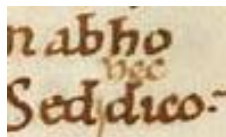 n ab ho
nec
Sed dico.